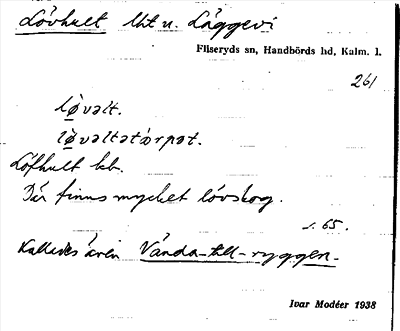 Lövhult lht u. Låggevi
Fliseryds sn, Handbörds hd, Kalm. l.
261
lø̀vəlt.
lø̀vəltətàrpət.
Löfhult kb.
Där finns mycket lövskog.
s. 65.
Kallades även Vända-till-ryggen.
Ivar Modéer 1938